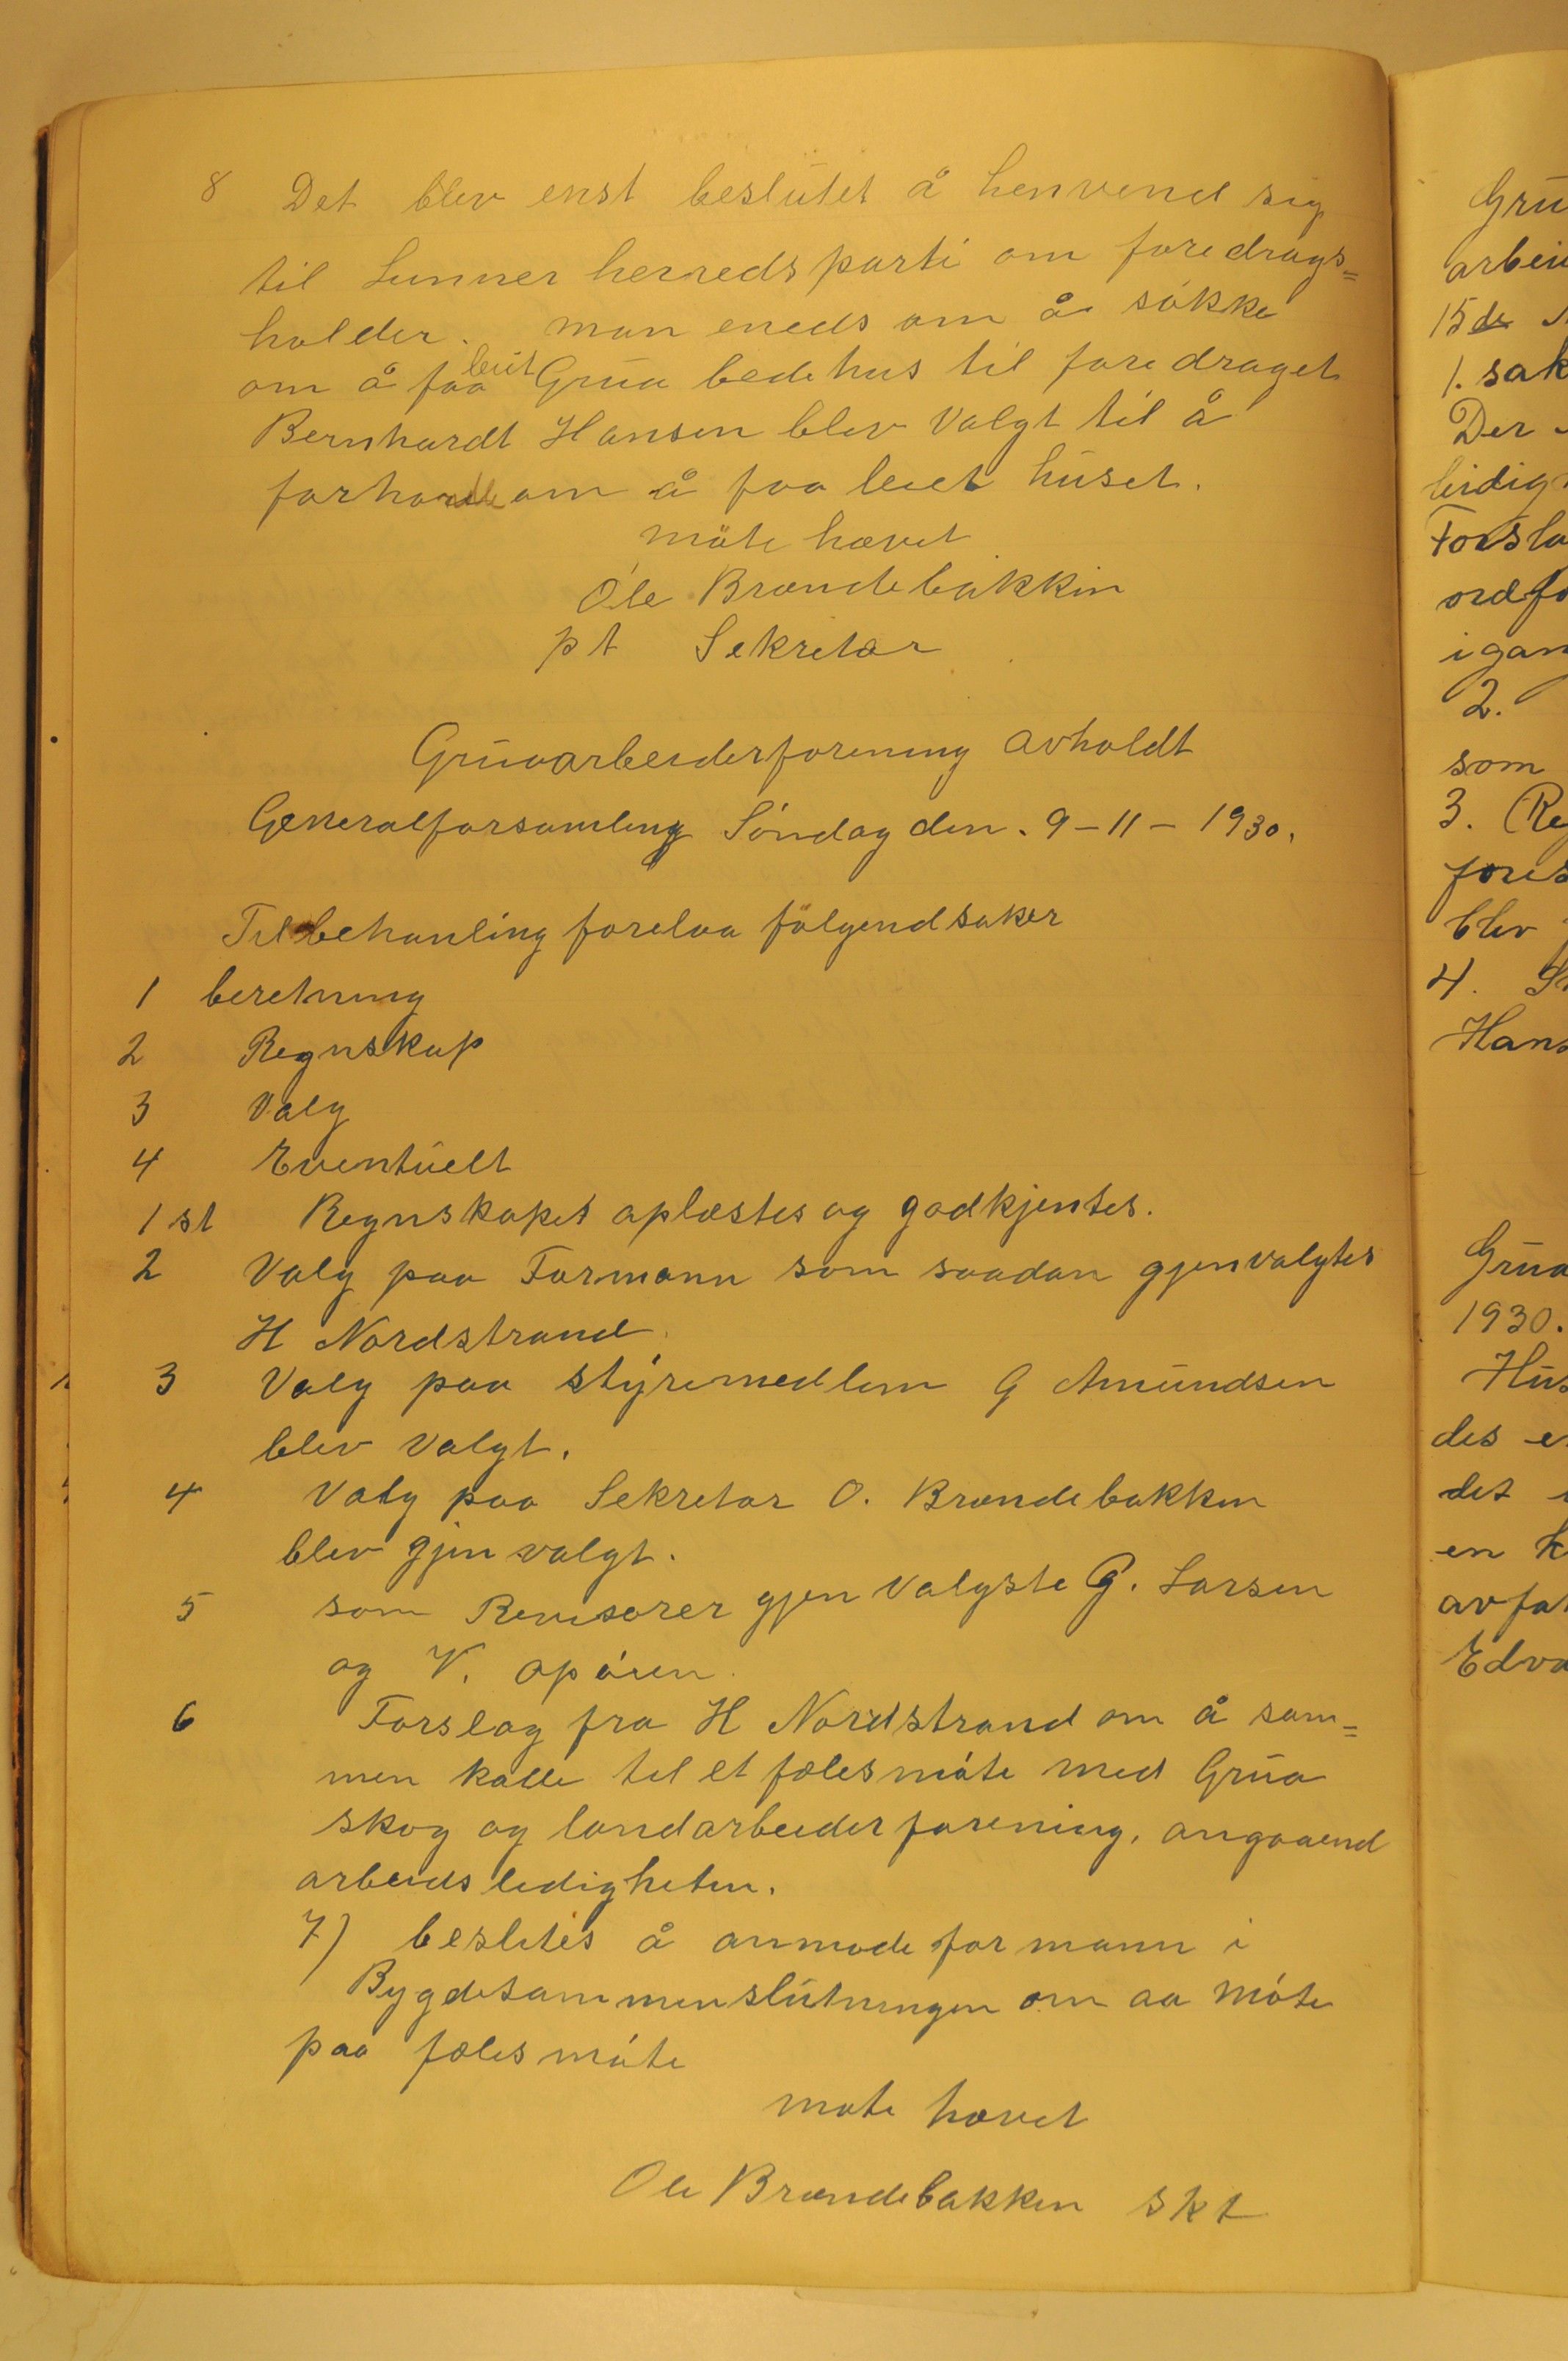 8 Det blev enst beslutet å henvend sig
til Lunner herredsparti om foredrags=
holder. man eneds om å søkke
om å faa leiet Grua bedehus til foredraget
Bernhardt Hansen blev Valgt til å
forhandle om å faa leiet huset.
möte hævet
Ole Brændebakkin
pt Sekretær
Gruaarbeiderforening avholdt
Generalforsamling Søndag den. 9-11-1930.
Til behanling forelaa fölgend saker
1 beretning
2 Regnskap
3 Valg
4 Eventuelt
1 st Regnskapet oplæstes og godkjentes.
2 Valg paa Formann som saadan gjenvalgtes
H Nordstrand
3 Valg paa styremedlem G Amundsen
blev Valgt.
4 Valg paa Sekretær O. Brændebakken
blev gjenvalgt.
5 som Revisorer gjen Valgste G. Larsen
og V.
6 Forslag fra H Nordstrand om å sam=
men kalle til et fælesmøte med Grua
skog og landarbeider forening, angaaend
arbeidsledigheten.
7) beslutes å anmode formann i
Bygdesammenslutningen om aa møte
paa fælesmøte
møte hævet
Ole Brændebakken skt
Gru
arbei
15 de
1. sak
Der
leidig
Forsla
ordfo
igan
2.
som
3. Re
fores
blev
4.
Hans
Grua
1930.
Hus
des e
det
en k
avfa
Edva